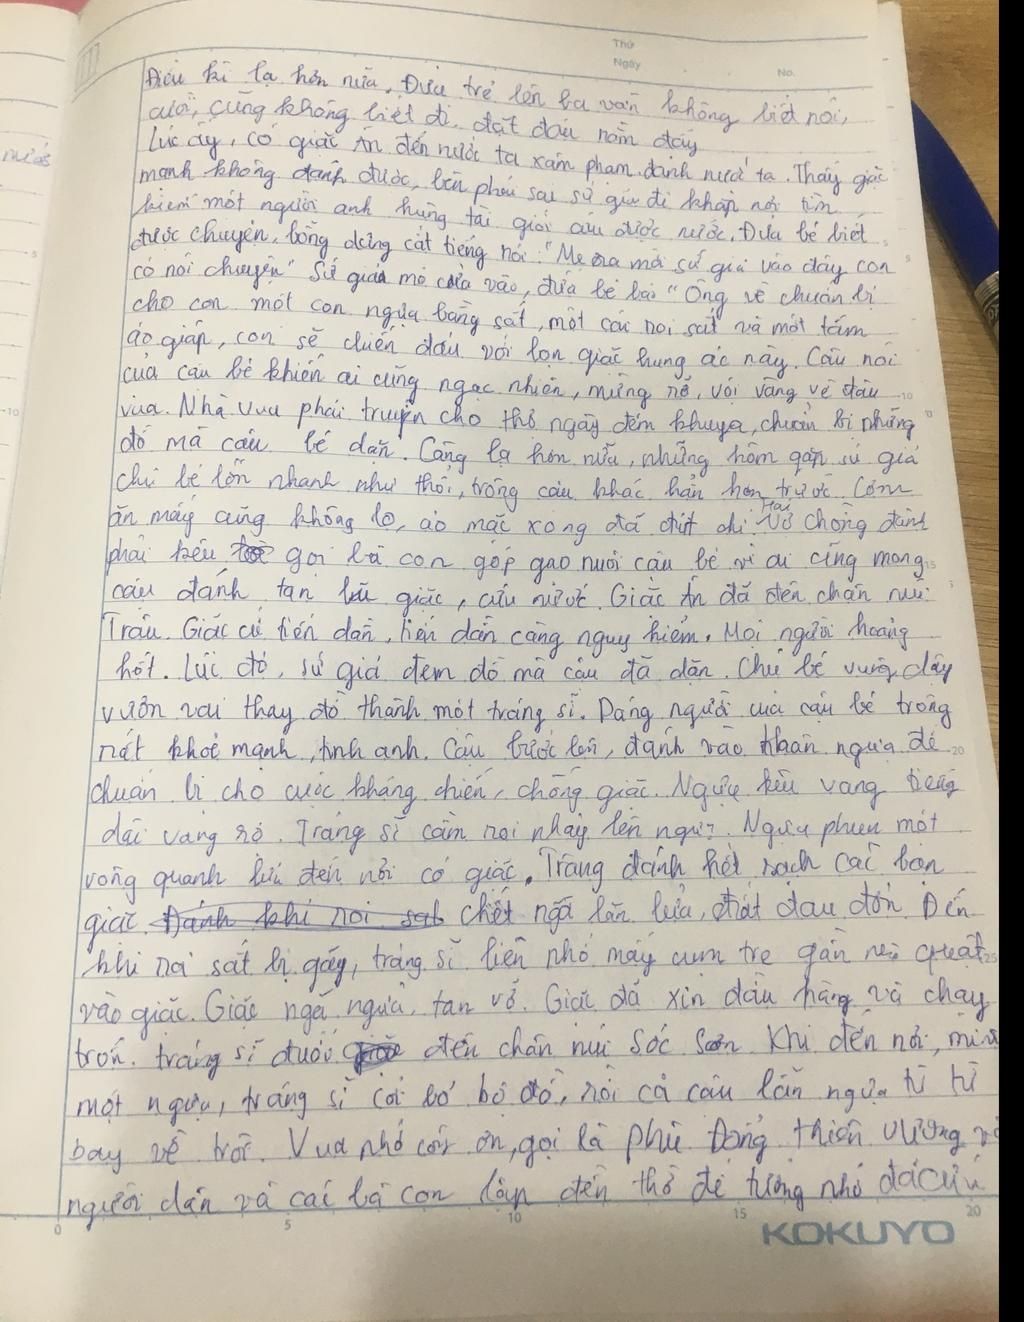 Thứ
Ngày
No.
Điều kì lạ hơn nữa, Đứa trẻ lên ba vẫn không biết nói,
cười, cũng không biết đi, đặt đâu nằm đấy
Lúc ấy, có giặc Ân đến nước ta xâm phạm, đánh nước ta. Thấy giặc
mạnh không đánh được, bèn phái sai sứ giả đi khắp nơi tìm
kiếm một người anh hùng tài giỏi cứu được nước. Đứa bé biết
được chuyện, bỗng dưng cất tiếng nói: "Mẹ ra mời sứ giả vào đây con
có nói chuyện" Sứ giả mở cửa vào, đứa bé bảo "Ông về chuẩn bị
cho con một con ngựa bằng sắt, một cái roi sắt và một tấm
áo giáp, con sẽ chiến đấu với bọn giặc hung ác này. Câu nói
của cậu bé khiến ai cũng ngạc nhiên, mừng rỡ, vội vàng về tâu
vua. Nhà vua phải truyền cho thợ ngày đêm khuya, chuẩn bị những
đồ mà cậu bé dặn. Càng lạ hơn nữa, những hôm gặp sứ giả
chú bé lớn nhanh như thổi, trông cậu khác hẳn hơn trước. Cơm
ăn mấy cũng không no, áo mặc xong đã đứt chỉ. Hai vợ chồng đành
phải kêu gọi bà con góp gạo nuôi cậu bé vì ai cũng mong
cậu đánh tan lũ giặc, cứu nước. Giặc Ân đã đến chân núi
Trâu. Giặc cứ tiến dần, tiến dần càng nguy hiểm. Mọi người hoảng
hốt. Lúc đó, sứ giả đem đồ mà cậu đã dặn. Chú bé vùng dậy
vươn vai thay đồ thành một tráng sĩ. Dáng người của cậu bé trông
rất khoẻ mạnh, tinh anh. Cậu bước lên, đánh vào thân ngựa để
chuẩn bị cho cuộc kháng chiến, chống giặc. Ngựa kêu vang tiếng
dài vang rõ. Tráng sĩ cầm roi nhảy lên ngựa. Ngựa phun một
vòng quanh lửa đến nơi có giặc. Tráng đánh hết sạch cái bọn
giặc chết ngã lần lửa, thật đau đớn. Đến
khi roi sắt bị gãy, tráng sĩ liền nhổ mấy cụm tre gần núi quật
vào giặc. Giặc ngã ngựa, tan vỡ. Giặc đã xin đầu hàng và chạy
trốn. tráng sĩ đuổi đến chân núi Sóc Sơn. Khi đến nơi, mình
một ngựa, tráng sĩ cởi bỏ bộ đồ, rồi cả cậu lẫn ngựa từ từ
bay về trời. Vua nhớ công ơn, gọi là phù Đổng thiên vương và
người dân và các bà con lập đền thờ để tưởng nhớ đã cứu
KOKUYO